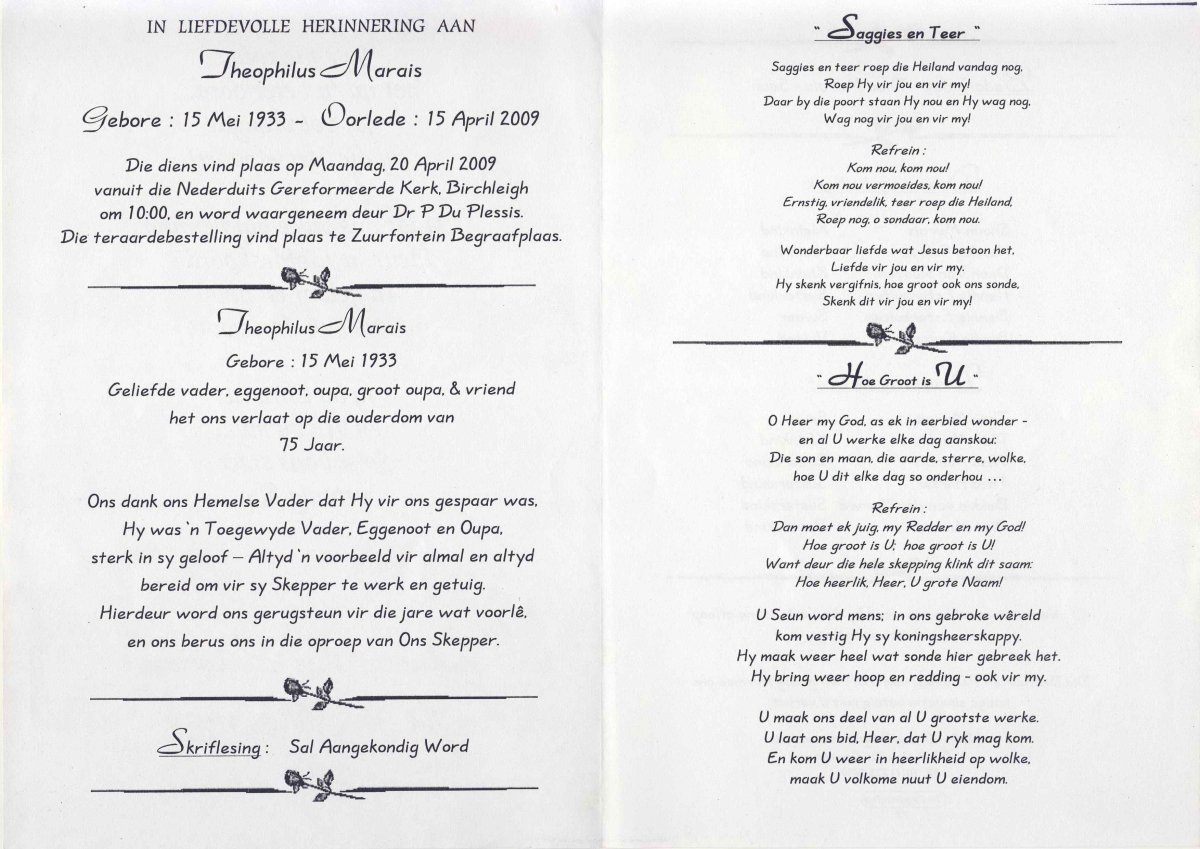 IN LIEFDEVOLLE HERINNERING AAN
Theophilus Marais
Gebore : 15 Mei 1933 - Oorlede : 15 April 2009
Die diens vind plaas op Maandag, 20 April 2009
vanuit die Nederduits Gereformeerde Kerk, Birchleigh
om 10:00, en word waargeneem deur Dr P Du Plessis.
Die teraardebestelling vind plaas te Zuurfontein Begraafplaas.
Theophilus Marais
Gebore : 15 Mei 1933
Geliefde vader, eggenoot, oupa, groot oupa, & vriend
het ons verlaat op die ouderdom van
75 Jaar.
Ons dank ons Hemelse Vader dat Hy vir ons gespaar was,
Hy was `n Toegewyde Vader, Eggenoot en Oupa,
sterk in sy geloof – Altyd `n voorbeeld vir almal en altyd
bereid om vir sy Skepper te werk en getuig.
Hierdeur word ons gerugsteun vir die jare wat voorlê,
en ons berus ons in die oproep van Ons Skepper.
Skriflesing : Sal Aangekondig Word
" Saggies en Teer "
Saggies en teer roep die Heiland vandag nog,
Roep Hy vir jou en vir my!
Daar by die poort staan Hy nou en Hy wag nog,
Wag nog vir jou en vir my!
Refrein :
Kom nou, kom nou!
Kom nou vermoeides, kom nou!
Ernstig, vriendelik, teer roep die Heiland,
Roep nog, o sondaar, kom nou.
Wonderbaar liefde wat Jesus betoon het,
Liefde vir jou en vir my.
Hy skenk vergifnis, hoe groot ook ons sonde,
Skenk dit vir jou en vir my!
" Hoe Groot is U "
O Heer my God, as ek in eerbied wonder -
en al U werke elke dag aanskou:
Die son en maan, die aarde, sterre, wolke,
hoe U dit elke dag so onderhou ...
Refrein :
Dan moet ek juig, my Redder en my God!
Hoe groot is U; hoe groot is U!
Want deur die hele skepping klink dit saam:
Hoe heerlik, Heer, U grote Naam!
U Seun word mens; in ons gebroke wêreld
kom vestig Hy sy koningsheerskappy.
Hy maak weer heel wat sonde hier gebreek het.
Hy bring weer hoop en redding - ook vir my.
U maak ons deel van al U grootste werke.
U laat ons bid, Heer, dat U ryk mag kom.
En kom U weer in heerlikheid op wolke,
maak U volkome nuut U eiendom.